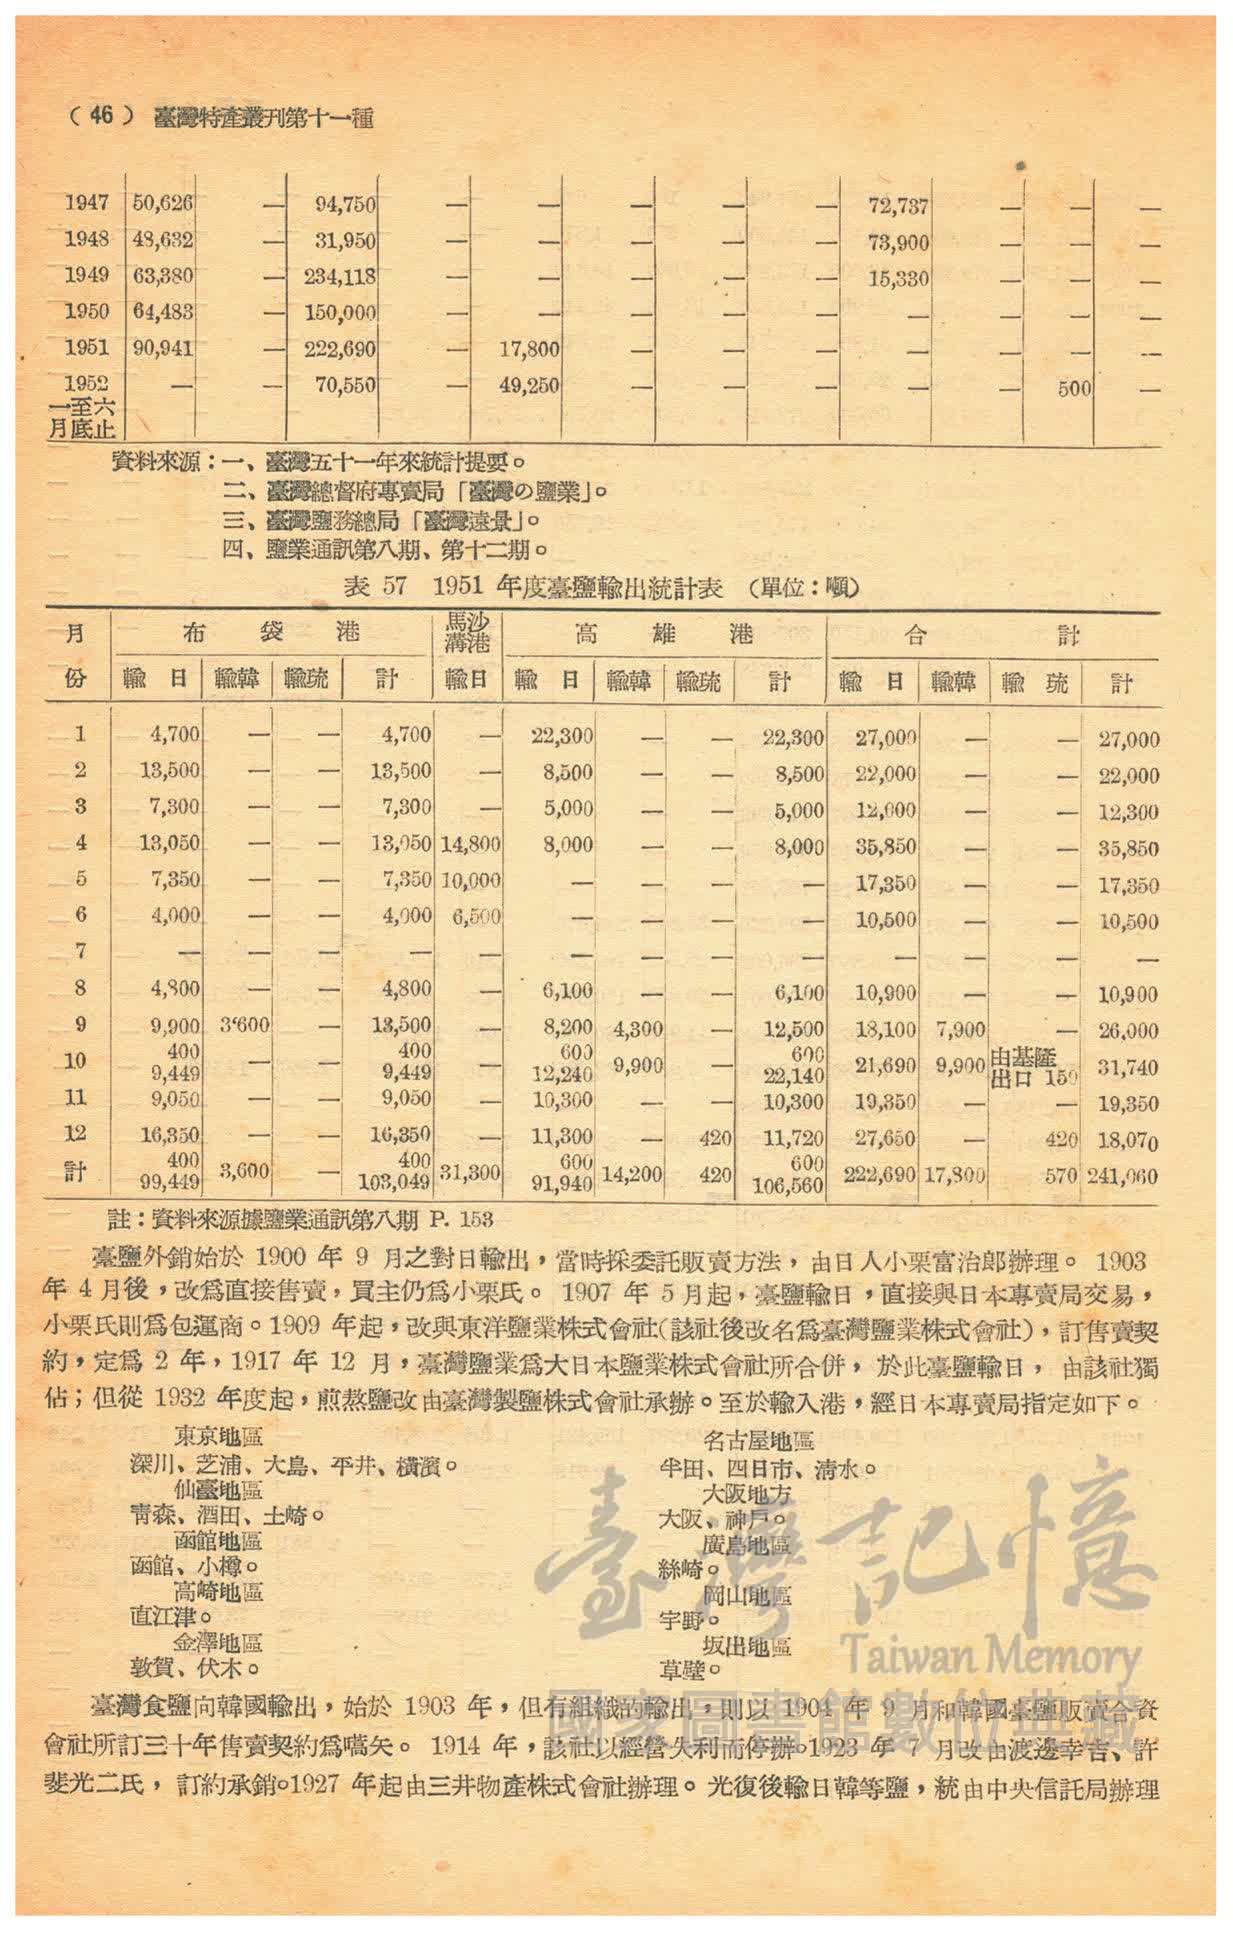 （46） 臺灣特產叢刊第十一種
1947 50,626 — 94,750 — — — — — 72,737 — — —
1948 48,632 — 31,950 — — — — — 73,900 — — —
1949 63,380 — 234,118 — — — — — 15,330 — — —
1950 64,483 — 150,000 — — — — — — — — —
1951 90,941 — 222,690 — 17,800 — — — — — — —
1952 — — 70,550 — 49,250 — — — — — 500 —
一至六
月底止
資料來源：一、臺灣五十一年來統計提要。
二、臺灣總督府專賣局「臺灣の鹽業」。
三、臺灣鹽務總局「臺灣遠景」。
四、鹽業通訊第八期、第十二期。
表 57 1951 年度臺鹽輸出統計表 （單位：噸）
月份 布袋港 馬沙溝港 高雄港 合計
輸日 輸韓 輸琉 計 輸日 輸日 輸韓 輸琉 計 輸日 輸韓 輸琉 計
1 4,700 — — 4,700 — 22,300 — — 22,300 27,000 — — 27,000
2 13,500 — — 13,500 — 8,500 — — 8,500 22,000 — — 22,000
3 7,300 — — 7,300 — 5,000 — — 5,000 12,000 — — 12,300
4 13,050 — — 13,050 14,800 8,000 — — 8,000 35,850 — — 35,850
5 7,350 — — 7,350 10,000 — — — — 17,350 — — 17,350
6 4,000 — — 4,000 6,500 — — — — 10,500 — — 10,500
7 — — — — — — — — — — — — —
8 4,800 — — 4,800 — 6,100 — — 6,100 10,900 — — 10,900
9 9,900 3‘600 — 13,500 — 8,200 4,300 — 12,500 18,100 7,900 — 26,000
400 400 600 600
10 9,449 — — 9,449 — 12,240 9,900 — 22,140 21,690 9,900 由基隆出口 150 31,740
11 9,050 — — 9,050 — 10,300 — — 10,300 19,350 — — 19,350
12 16,350 — — 16,350 — 11,300 — 420 11,720 27,650 — 420 18,070
400 400 600 600
計 99,449 3,600 — 103,049 31,300 91,940 14,200 420 106,560 222,690 17,800 570 241,060
註：資料來源據鹽業通訊第八期 P. 153
臺鹽外銷始於 1900 年 9 月之對日輸出，當時採委託販賣方法，由日人小栗富治郎辦理。 1903
年 4 月後，改爲直接售賣，買主仍爲小栗氏。 1907 年 5 月起，臺鹽輸日，直接與日本專賣局交易，
小栗氏則爲包運商。1909 年起，改與東洋鹽業株式會社（該社後改名爲臺灣鹽業株式會社），訂售賣契
約，定爲 2 年，1917 年 12 月，臺灣鹽業爲大日本鹽業株式會社所合併，於此臺鹽輸日，由該社獨
佔；但從 1932 年度起，煎熬鹽改由臺灣製鹽株式會社承辦。至於輸入港，經日本專賣局指定如下。
東京地區
深川、芝浦、大島、平井、橫濱。
仙臺地區
靑森、酒田、土崎。
函館地區
函館、小樽。
高崎地區
直江津。
金澤地區
敦賀、伏木。
名古屋地區
半田、四日市、清水。
大阪地方
大阪、神戶。
廣島地區
絲崎。
岡山地區
宇野。
坂出地區
草壁。
臺灣食鹽向韓國輸出，始於 1903 年，但有組織的輸出，則以 1904 年 9 月和韓國臺鹽販賣合資
會社所訂三十年售賣契約爲嚆矢。 1914 年，該社以經營失利而停辦。1923 年 7 月改由渡邊幸吉、許
斐光二氏，訂約承銷。1927 年起由三井物產株式會社辦理。光復後輸日韓等鹽，統由中央信託局辦理
臺灣記憶
Taiwan Memory
國家圖書館數位典藏